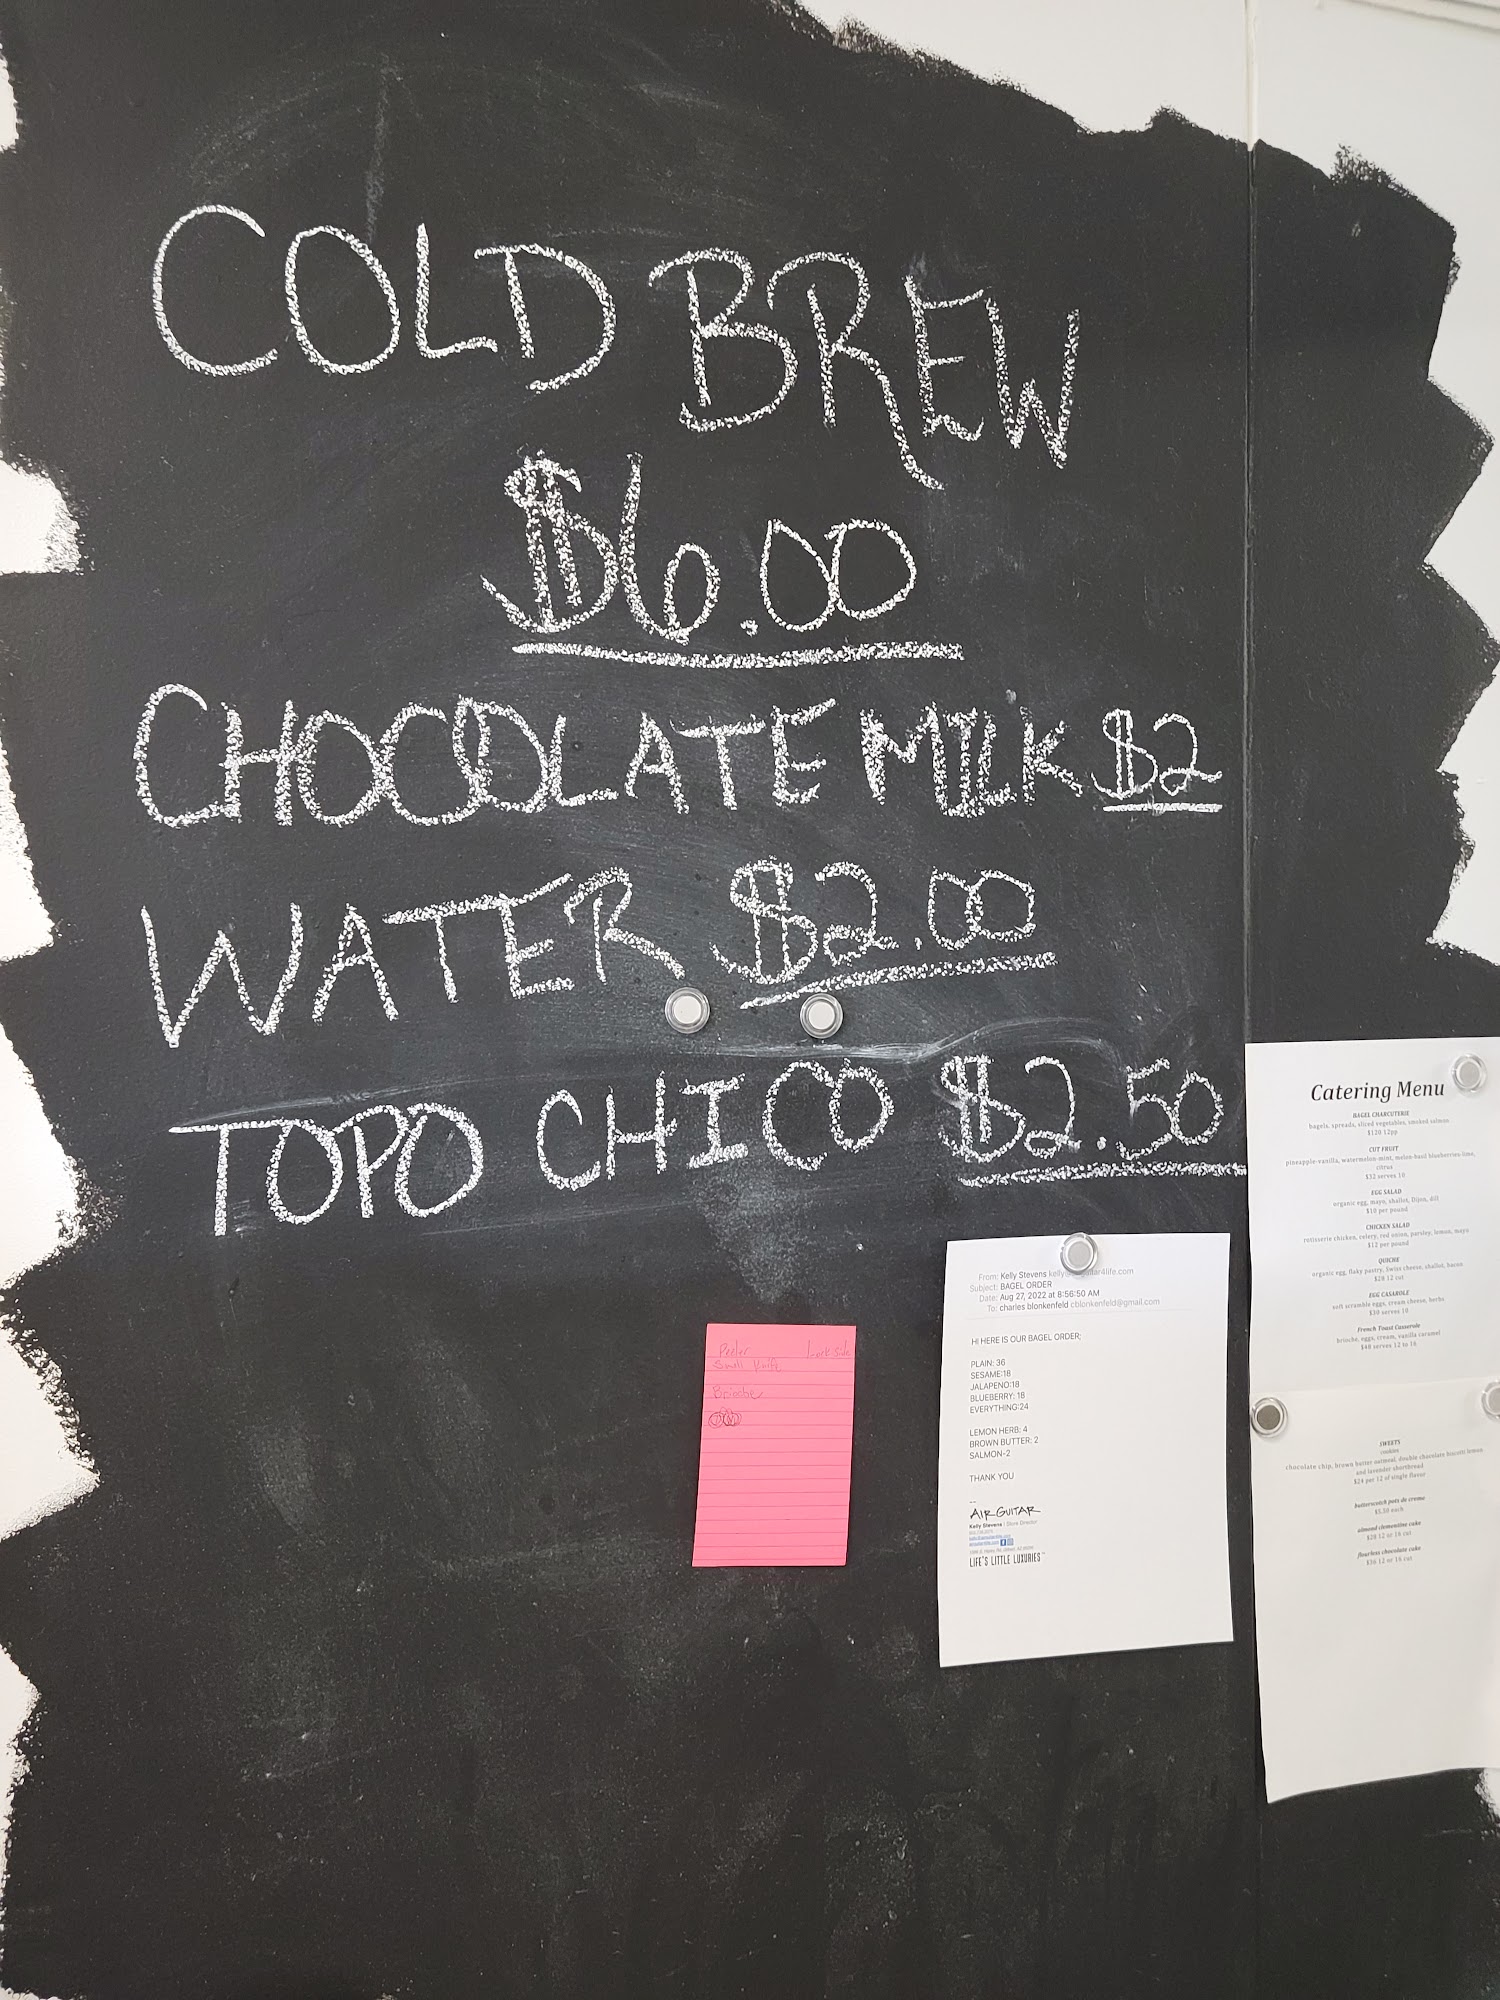 COLD BREW
$6.00
CHOCOLATE MILK $2
WATER $2.00
TOPO CHICO $2.50
Catering Menu
BAGEL CHARCUTERIE
bagels, spreads, sliced vegetables, smoked salmon
$120 12pp
CUT FRUIT
pineapple-vanilla, watermelon-mint, melon-basil blueberries-lime,
citrus
$32 serves 10
EGG SALAD
organic egg, mayo, shallot, Dijon, dill
$10 per pound
CHICKEN SALAD
rotisserie chicken, celery, red onion, parsley, lemon, mayo
$12 per pound
QUICHE
organic egg, flaky pastry, Swiss cheese, shallot, bacon
$28 12 cut
EGG CASAROLE
soft scramble eggs, cream cheese, herbs
$30 serves 10
French Toast Casserole
brioche, eggs, cream, vanilla caramel
$48 serves 12 to 16
SWEETS
cookies
chocolate chip, brown butter oatmeal, double chocolate biscotti lemon
and lavender shortbread
$24 per 12 of single flavor
butterscotch pots de creme
$5.50 each
almond clementine cake
$28 12 or 16 cut
flourless chocolate cake
$36 12 or 16 cut
From: Kelly Stevens
Subject: BAGEL ORDER
Date: Aug 27, 2022 at 8:56:50 AM
To: charles blonkenfeld cblonkenfeld@gmail.com
HI HERE IS OUR BAGEL ORDER;
PLAIN: 36
SESAME:18
JALAPENO:18
BLUEBERRY: 18
EVERYTHING:24
LEMON HERB: 4
BROWN BUTTER: 2
SALMON-2
THANK YOU
--
AIR GUITAR
Kelly Stevens | Store Director
LIFE'S LITTLE LUXURIES™
Peeler
Small Knife
Brioche